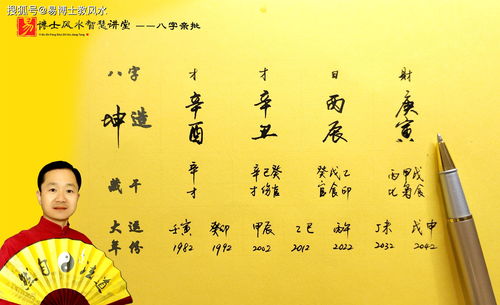 搜狐号@易博士教风水
易 博士风水智慧讲堂 ——八字亲批
Yi Bo Shi Feng Shui Zhi Hui Jiang Tang
八字 才 才 日 財
坤造 辛 辛 丙 庚
酉 丑 辰 寅
藏干 辛 辛己癸 癸戊乙 丙甲戊
才 才伤官 官食印 比枭食
大運 壬寅 癸卯 甲辰 乙巳 丙午 丁未 戊申
年份 1982 1992 2002 2012 2022 2032 2042
然自法道